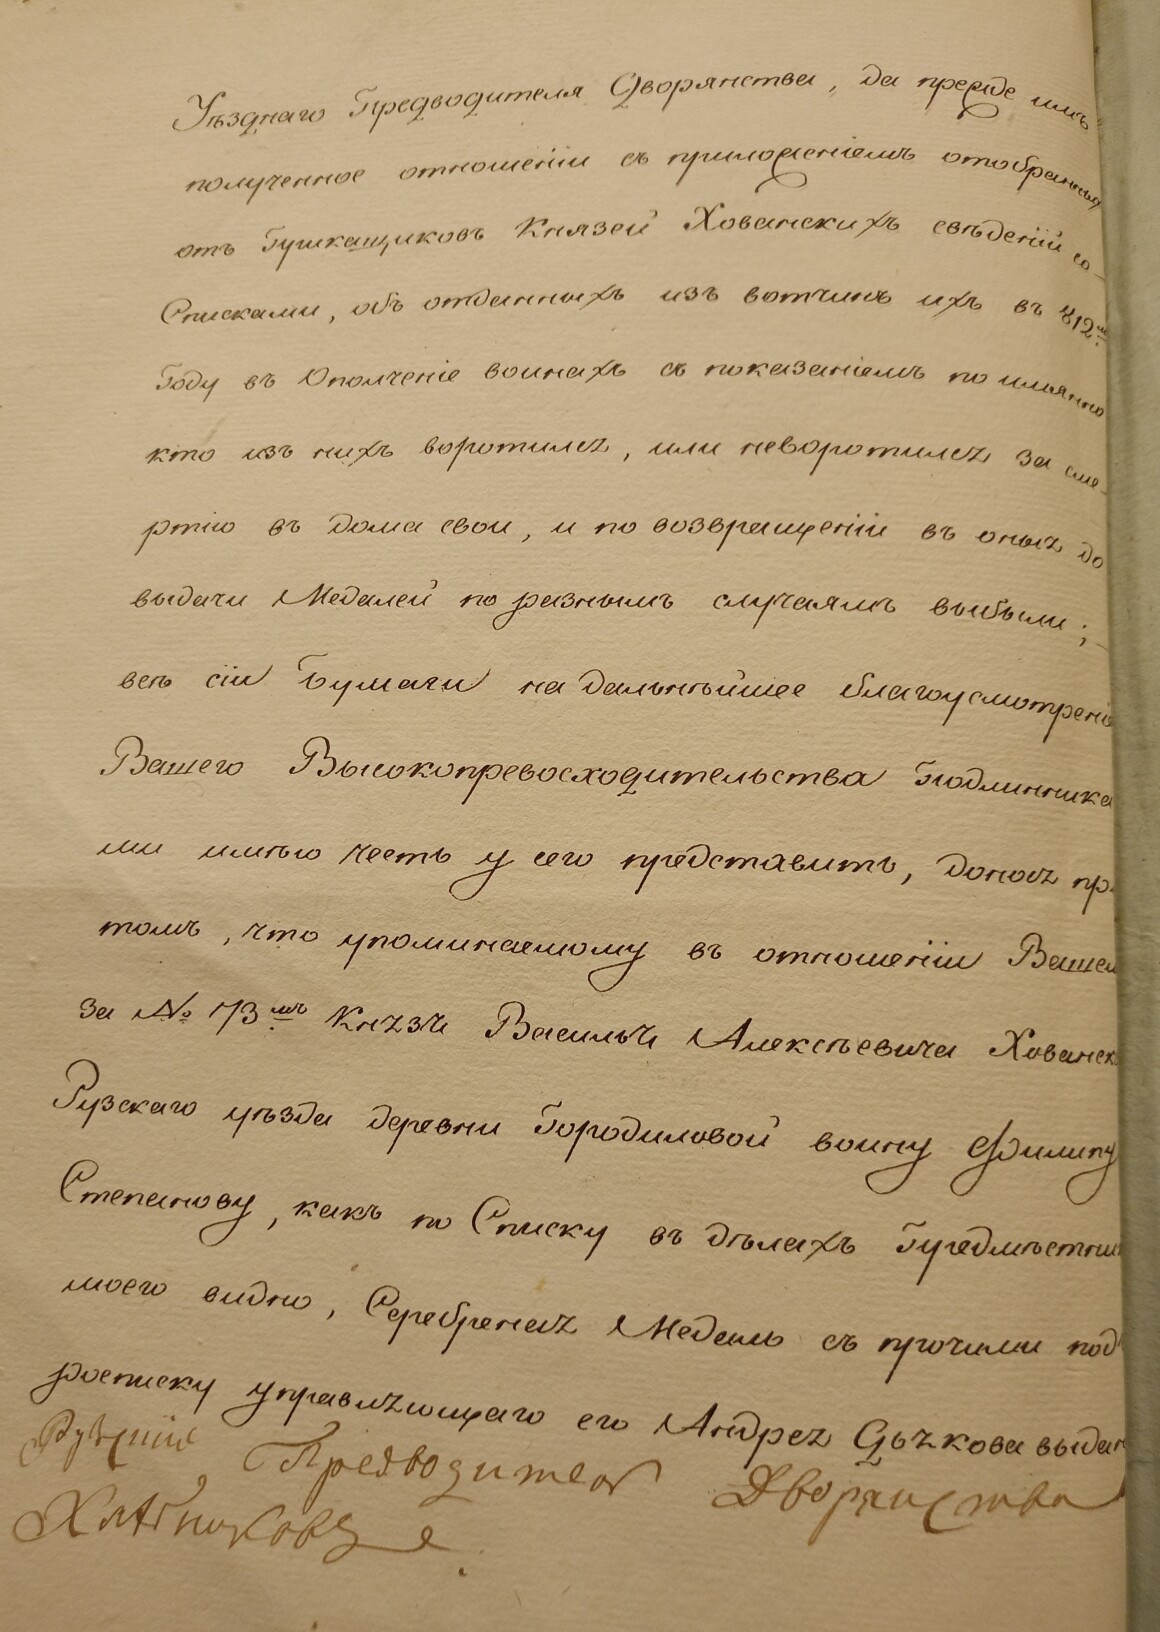 Уѣзднаго Предводителя Дворянства, да прежде имъ
полученное отношеніи съ приложеніемъ отобранныя
отъ Прикащиковъ Князей Хованскихъ свѣденій со
Списками, объ отданныхъ изъ вотчинъ ихъ въ 812.мъ
Году въ Ополченіе воинахъ съ показаніемъ по имянно
кто изъ нихъ воротился, или неворотился за сме-
ртію въ дома свои, и по возвращеніи въ оныя до
выдачи Медалей по разнымъ случаямъ выбыли;
всѣ сіи Бумаги на дальнѣйшее благоусмотреніе
Вашего Высокопревосходительства Подлинника
ми имѣю честь у сего представить, донося при
томъ, что упоминаемому въ отношеніи Вашем
за № 173.мъ Князя Василья Алексѣевича Хованск
Рузскаго уѣзда деревни Городиловой воину Филипу
Степанову, какъ по Списку въ дѣлахъ Предмѣстни
моего видно, Серебреная Медаль съ прочими под
росписку управляющаго его Андрея Дьячкова выдан
Рузский Предводитель Дворянства